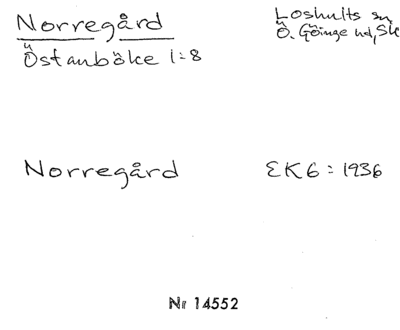 Norregård
Loshults sn
Östanböke 1:8
Ö. Göinge hd, Sk
Norregård
EK6 = 1936
Nr 14552